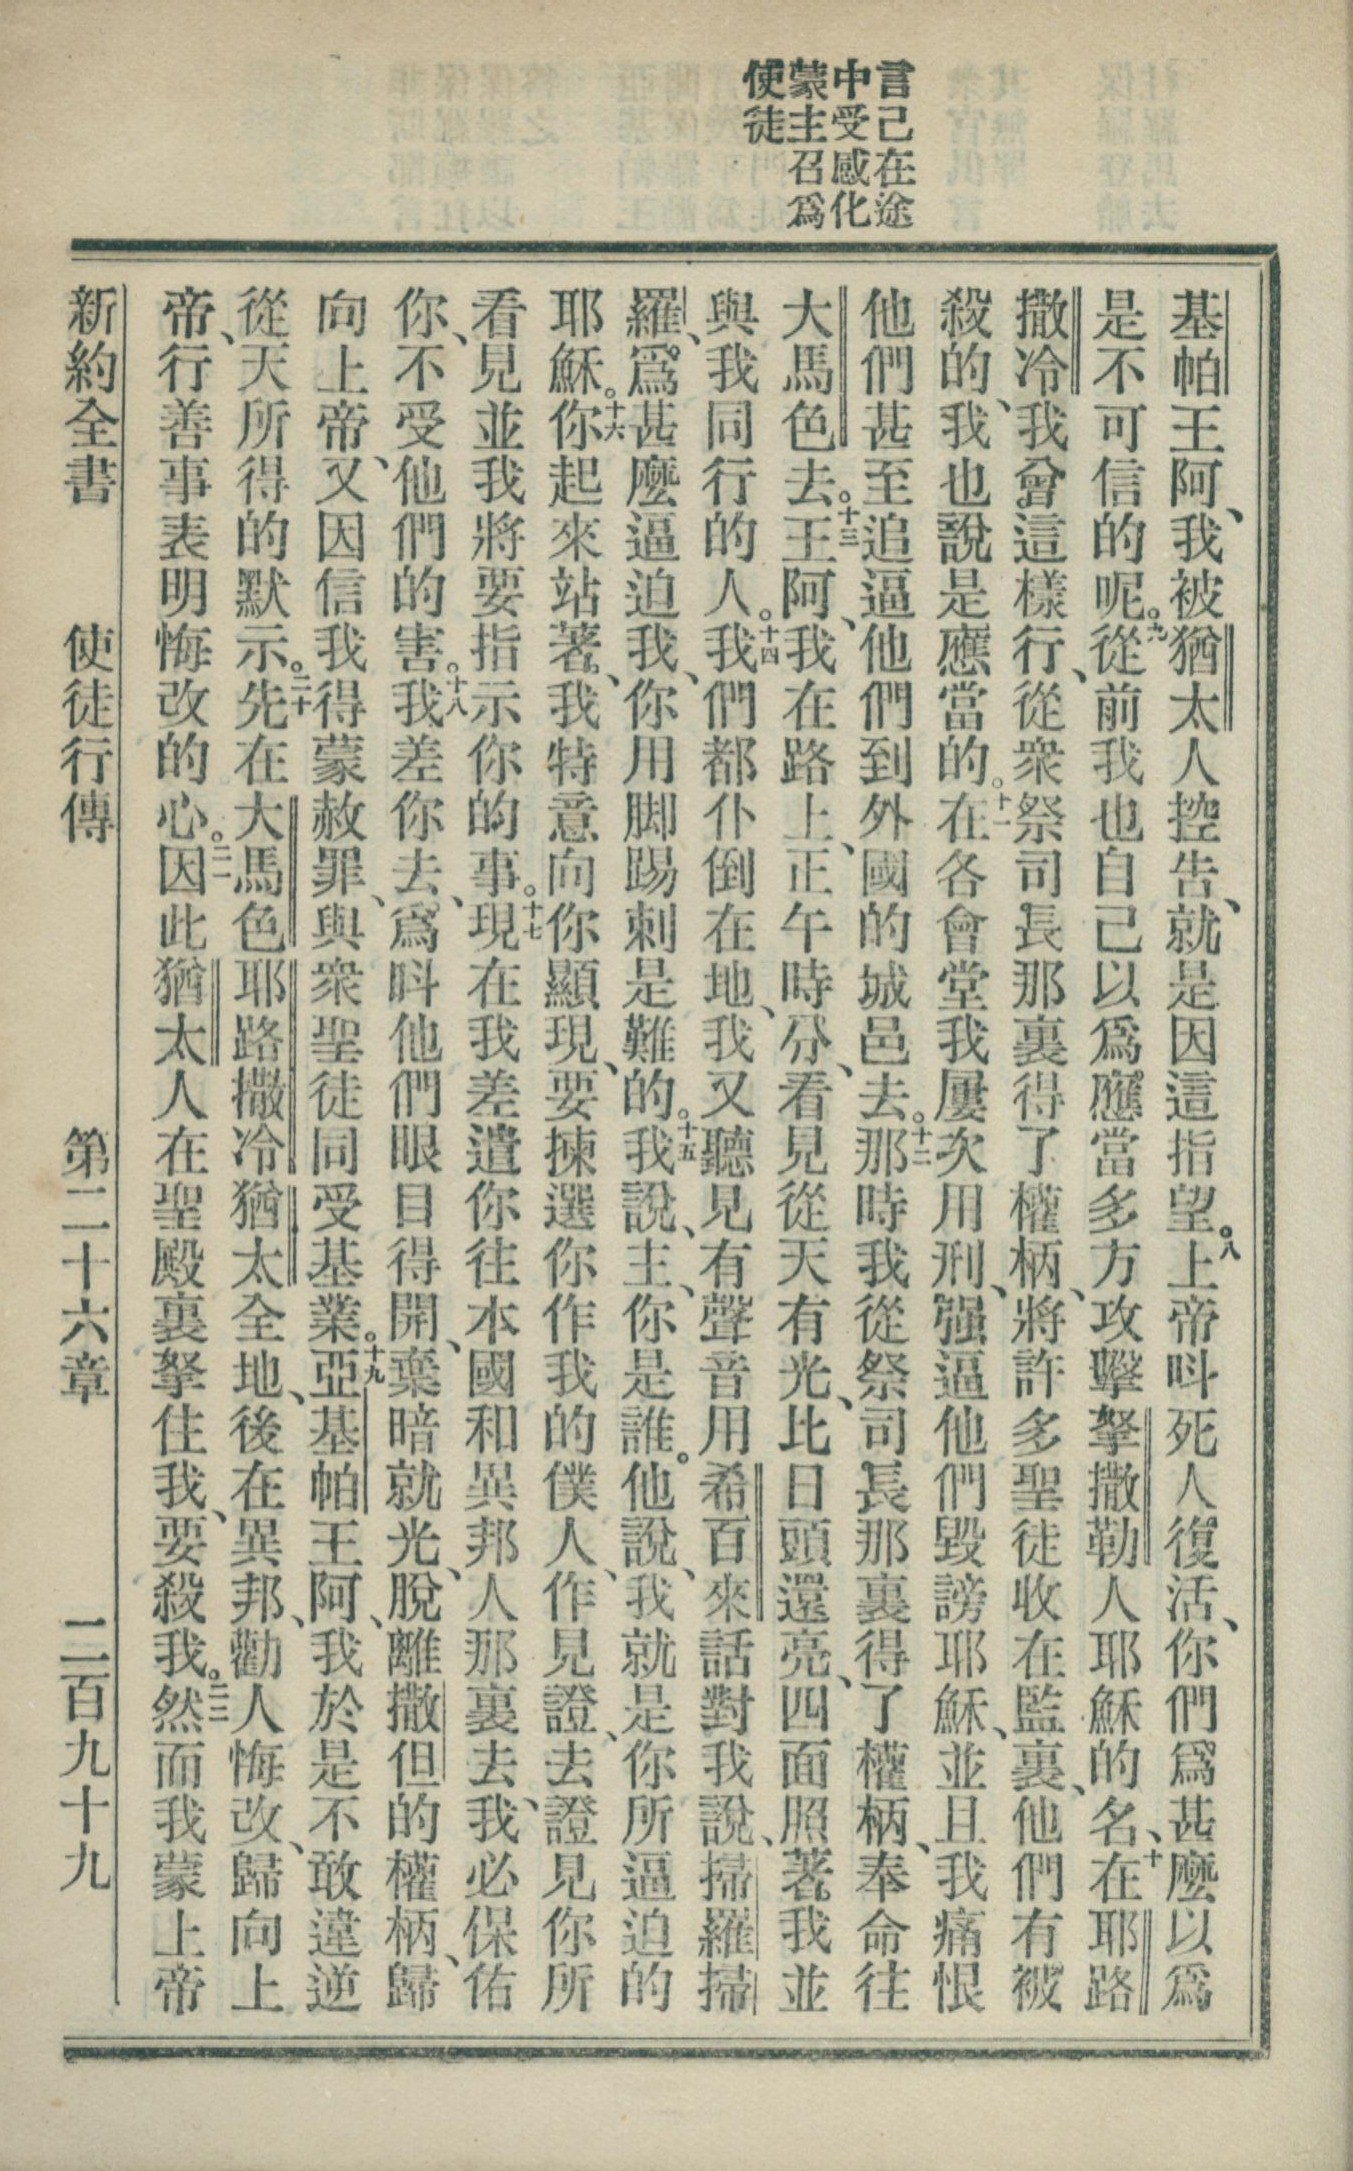 言己在途
中受感化
蒙主召爲
使徒
基帕王阿、我被猶太人控告、就是因這指望。八上帝呌死人復活、你們爲甚麽以爲
是不可信的呢。九從前我也自己以爲應當多方攻擊拏撒勒人耶穌的名、十在耶路
撒冷我曾這樣行、從衆祭司長那裏得了權柄、將許多聖徒收在監裏、他們有被
殺的、我也說是應當的。十一在各會堂我屢次用刑、强逼他們毀謗耶穌、並且我痛恨
他們甚至追逼他們到外國的城邑去。十二那時我從祭司長那裏得了權柄、奉命往
大馬色去。十三王阿、我在路上、正午時分、看見從天有光、比日頭還亮、四面照著我並
與我同行的人。十四我們都仆倒在地、我又聽見有聲音用希百來話對我說、掃羅掃
羅、爲甚麽逼迫我、你用脚踢刺是難的。十五我說、主、你是誰。他說、我就是你所逼迫的
耶穌。十六你起來站著、我特意向你顯現、要揀選你作我的僕人、作見證、去證見你所
看見並我將要指示你的事。十七現在我差遣你往本國和異邦人那裏去、我必保佑
你、不受他們的害。十八我差你去、爲呌他們眼目得開、棄暗就光、脫離撒但的權柄、歸
向上帝、又因信我得蒙赦罪、與衆聖徒同受基業。十九亞基帕王阿、我於是不敢違逆
從天所得的默示。二十先在大馬色耶路撒冷猶太全地、後在異邦、勸人悔改、歸向上
帝、行善事表明悔改的心。二一因此猶太人在聖殿裏拏住我、要殺我。二二然而我蒙上帝
新約全書　使徒行傳　第二十六章　二百九十九